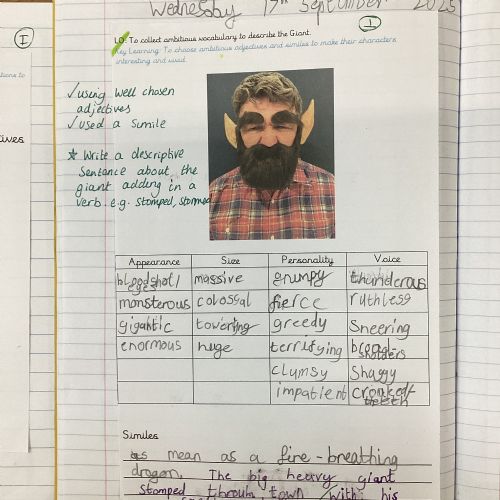 Wednesday 17th September 2025
I
1
LO: To collect ambitious vocabulary to describe the Giant.
Key Learning: To choose ambitious adjectives and similes to make their characters
interesting and vivid.
tions to
ives
✓using well chosen
adjectives
✓ used a simile
* Write a descriptive
sentence about the
giant adding in a
verb e.g. stomped, stormed
Appearance Size Personality Voice
bloodshot/ eyes massive grumpy thunderous
monsterous colossal fierce ruthless
gigantic towering greedy Sneering
enormous huge terrifying broad-sholders
clumsy Shaggy
impatient crooked/ teeth
Similes
as mean as a fire-breathing
dragon. The big heavy giant
stomped through town with his